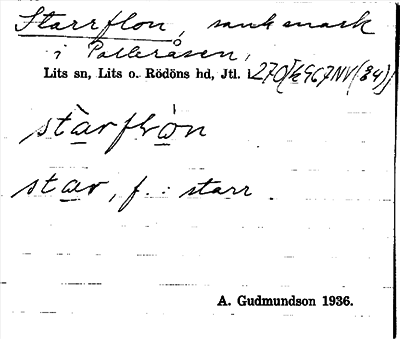 Starrflon, sank mark
i Palleråsen,
Lits sn, Lits o. Rödöns hd, Jtl. i
stàrflòn
star, f. : starr.
A. Gudmundson 1936.